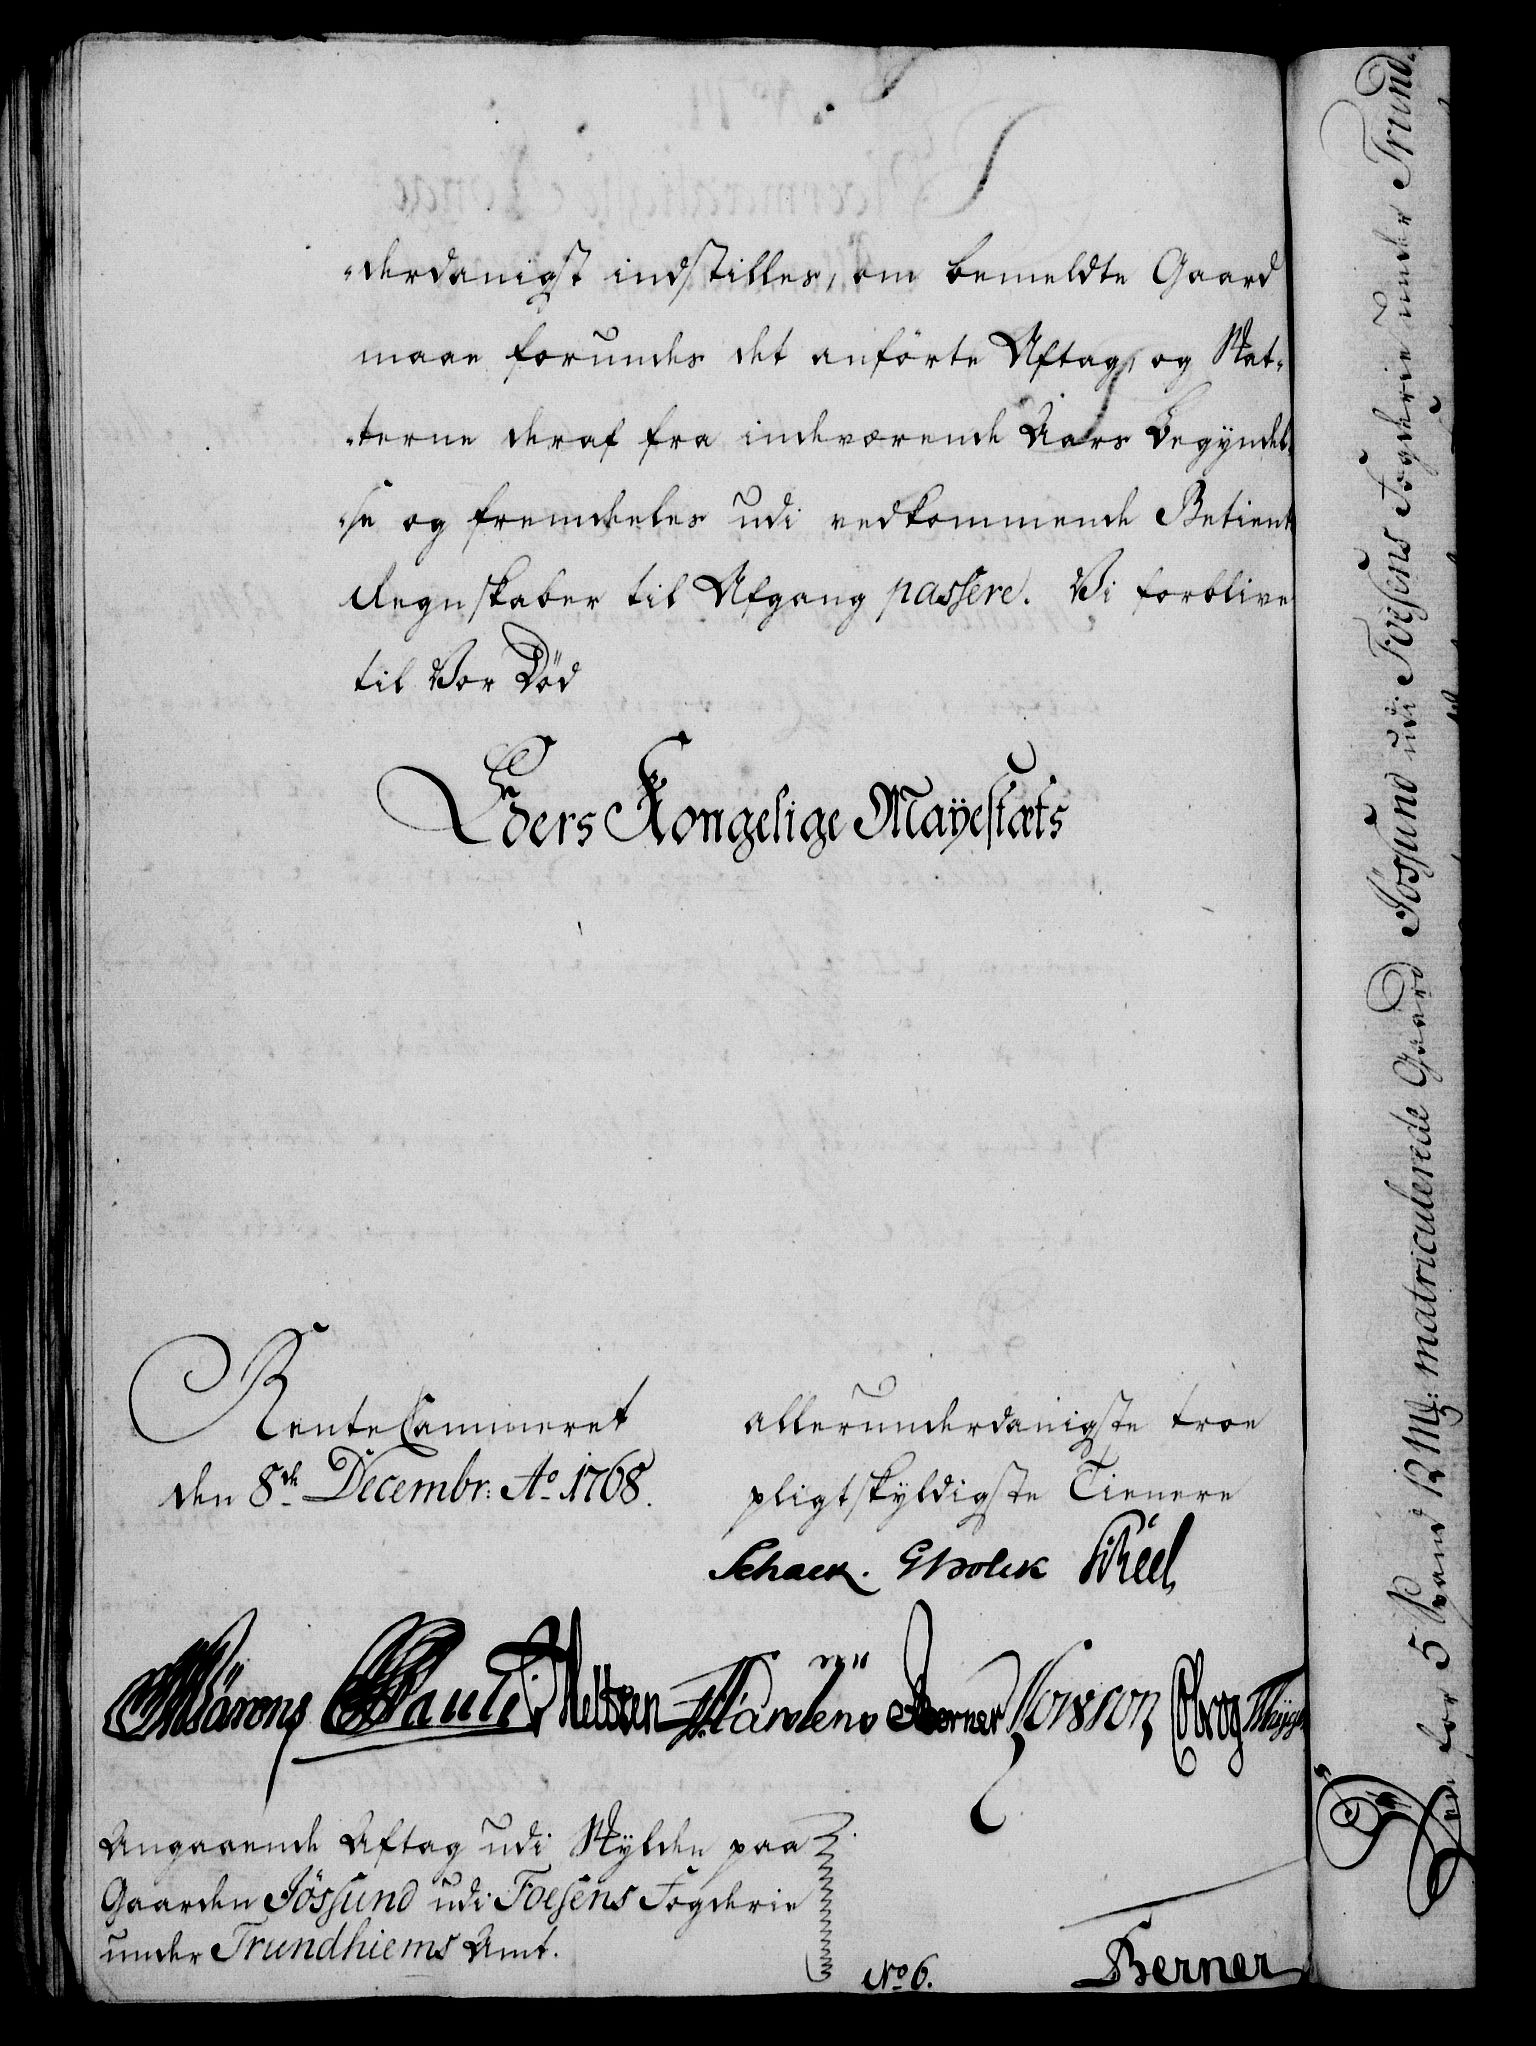 -derdanigst indstilles, om bemeldte Gaard
maae forundes det anförte Aftag, og Skat-
-terne deraf fra indeværende Aars Begÿndel-
-se og fremdeeles udi vedkommende Betients
Regnskaber til Afgang passere. Vi forblive
til Vor Död
Eders Kongelige Mayestæts
Rente Cammeret
den 8de Decembr: Ao 1768.
allerunderdanigste troe
pligtskÿldigste Tienere
Schack. GHolck SKeel
Pauli Meltzen Berner
Angaaende Aftag udi Skÿlden paa
Gaarden Jössund udi Foesens Fogderie
under Trundhiems Amt.
No 6.
Berner
Den for 5 Spand 12 Mk: matriculerede Gaard Jössund udi Foesens Fogderie under Trund-